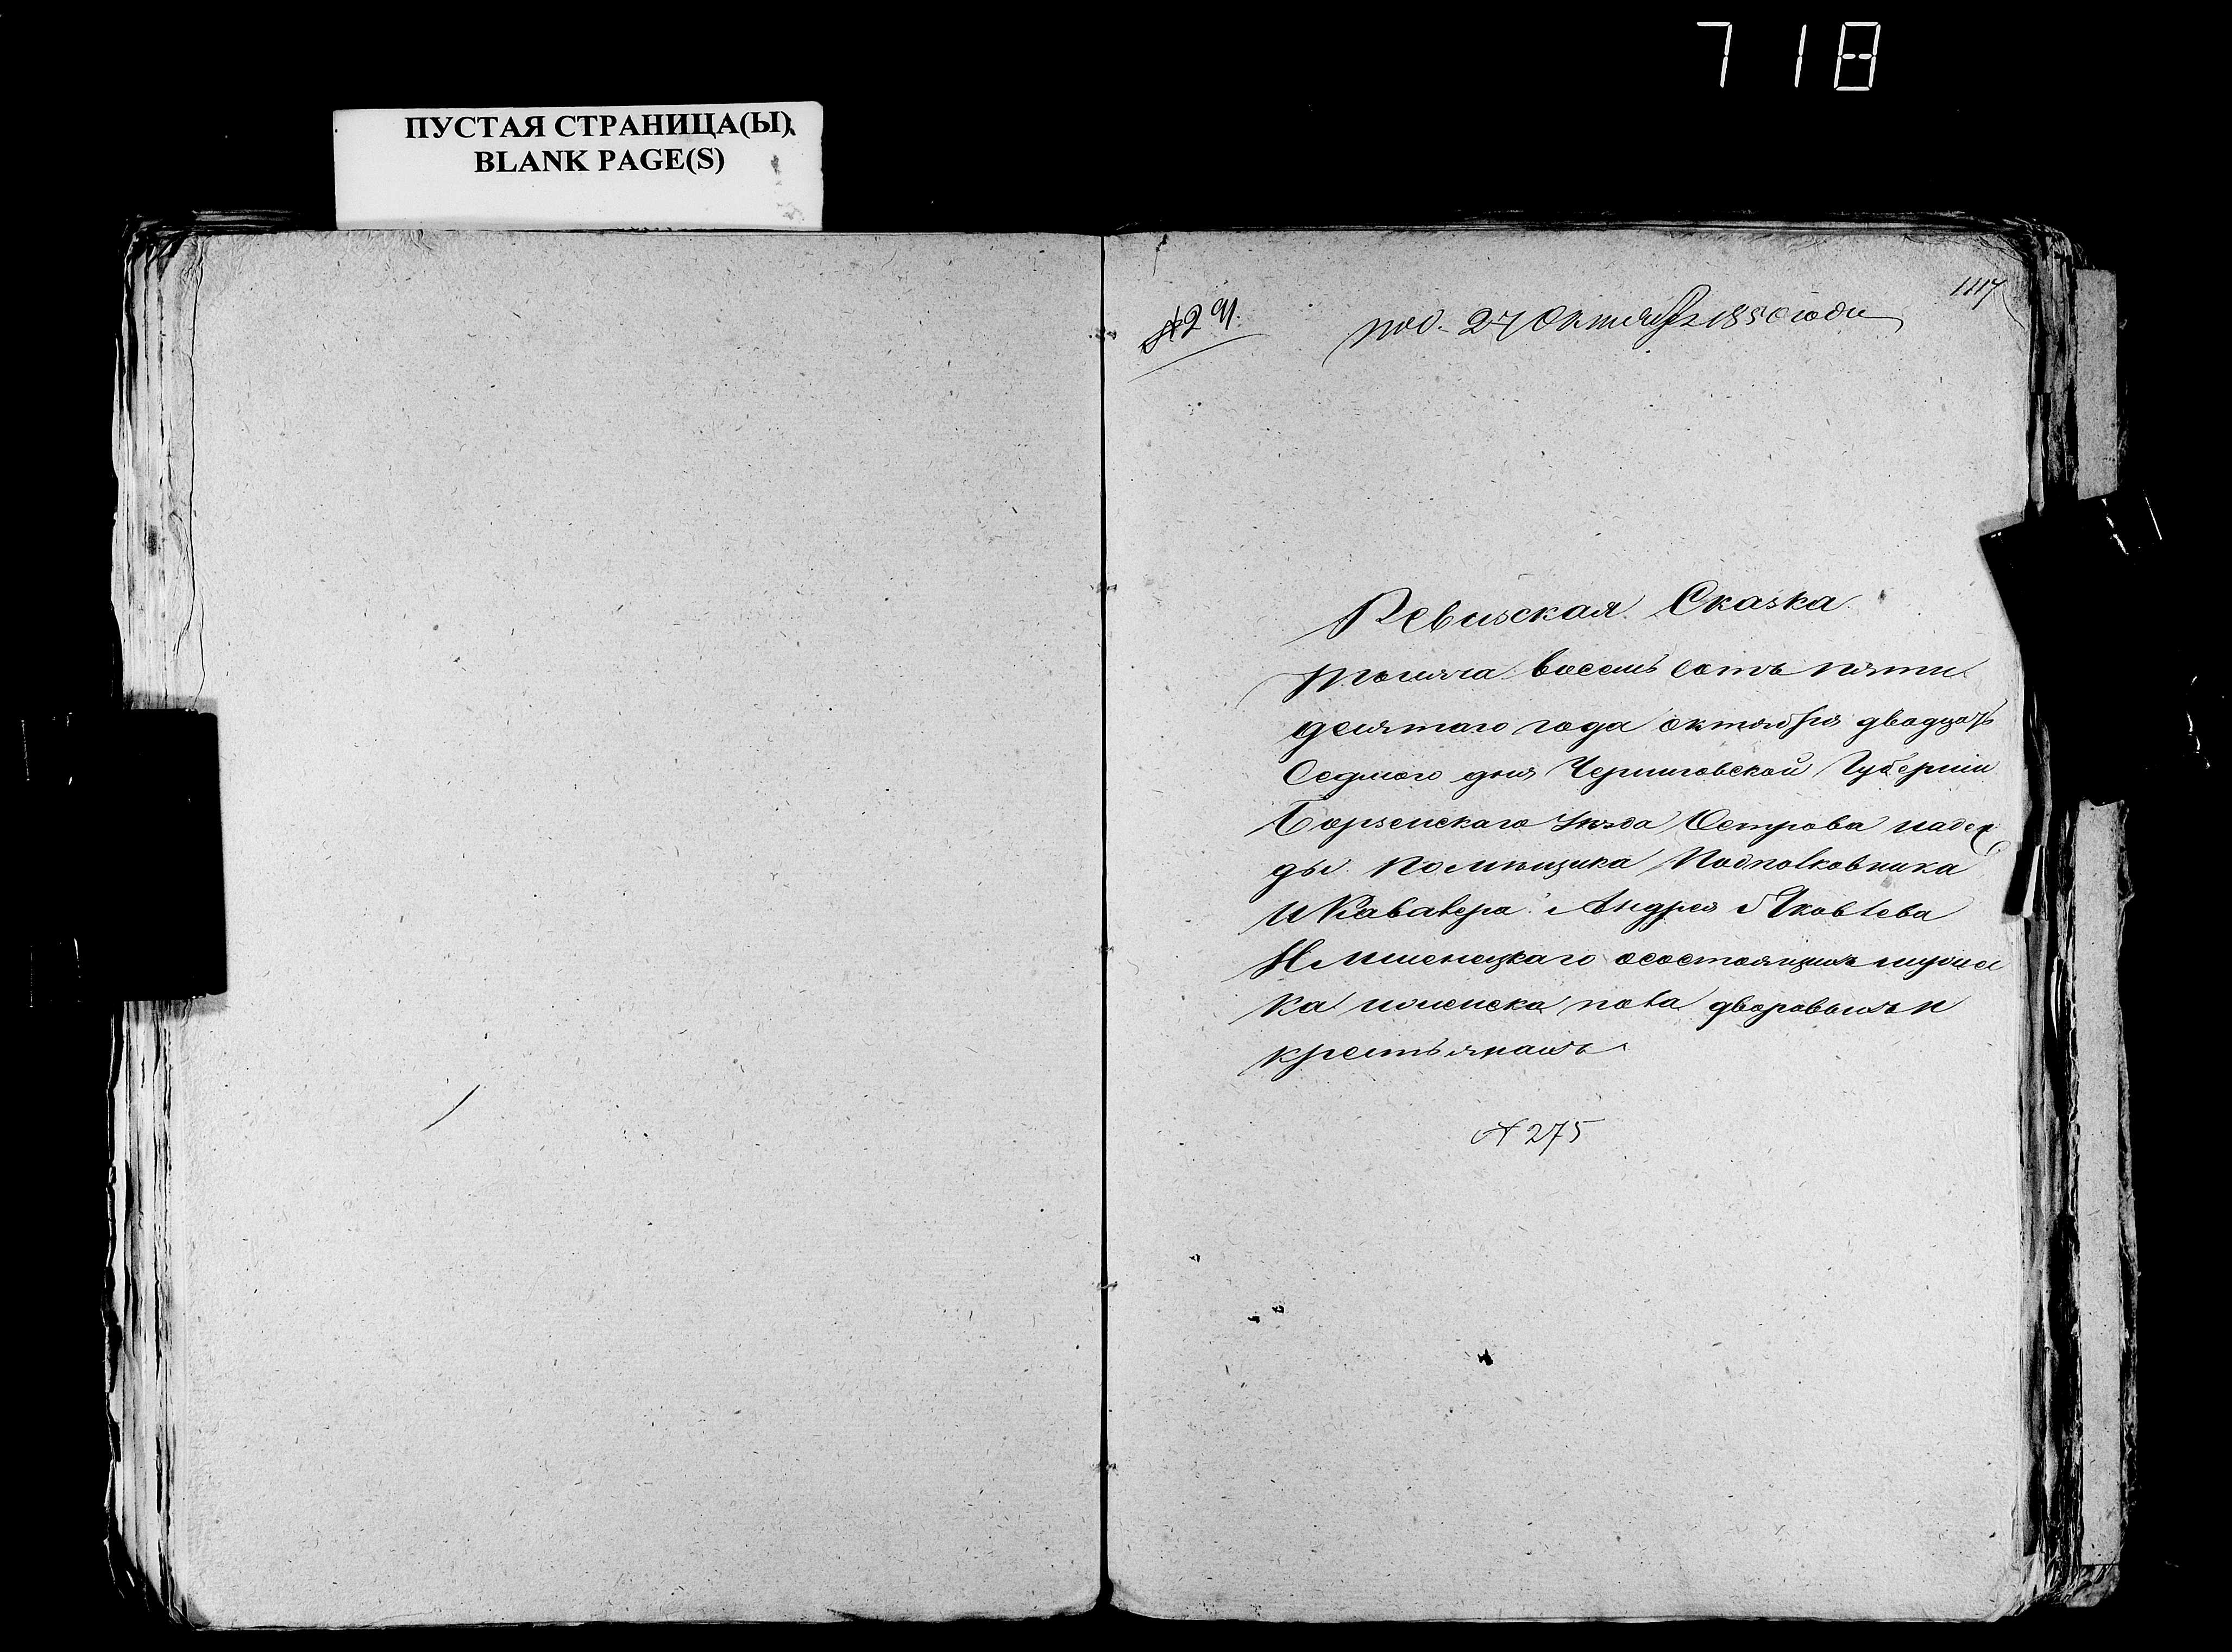 718
ПУСТАЯ СТРАНИЦА(Ы)
BLANK PAGE(S)
1117
№291.
под. 27 Октября 1850 года
Ревиская Сказка
тысяча восемь сотъ пяти
десятаго года октября двадцать
Седмого дня Черниговской Губернии
Борзенскаго уезда Острова надеж
ды помещика Подполковника
и Кавалера Андрея Яковлева
осостоящихъ мужес
ка иженска пола дворовыхъ и
крестьянахъ
№ 275